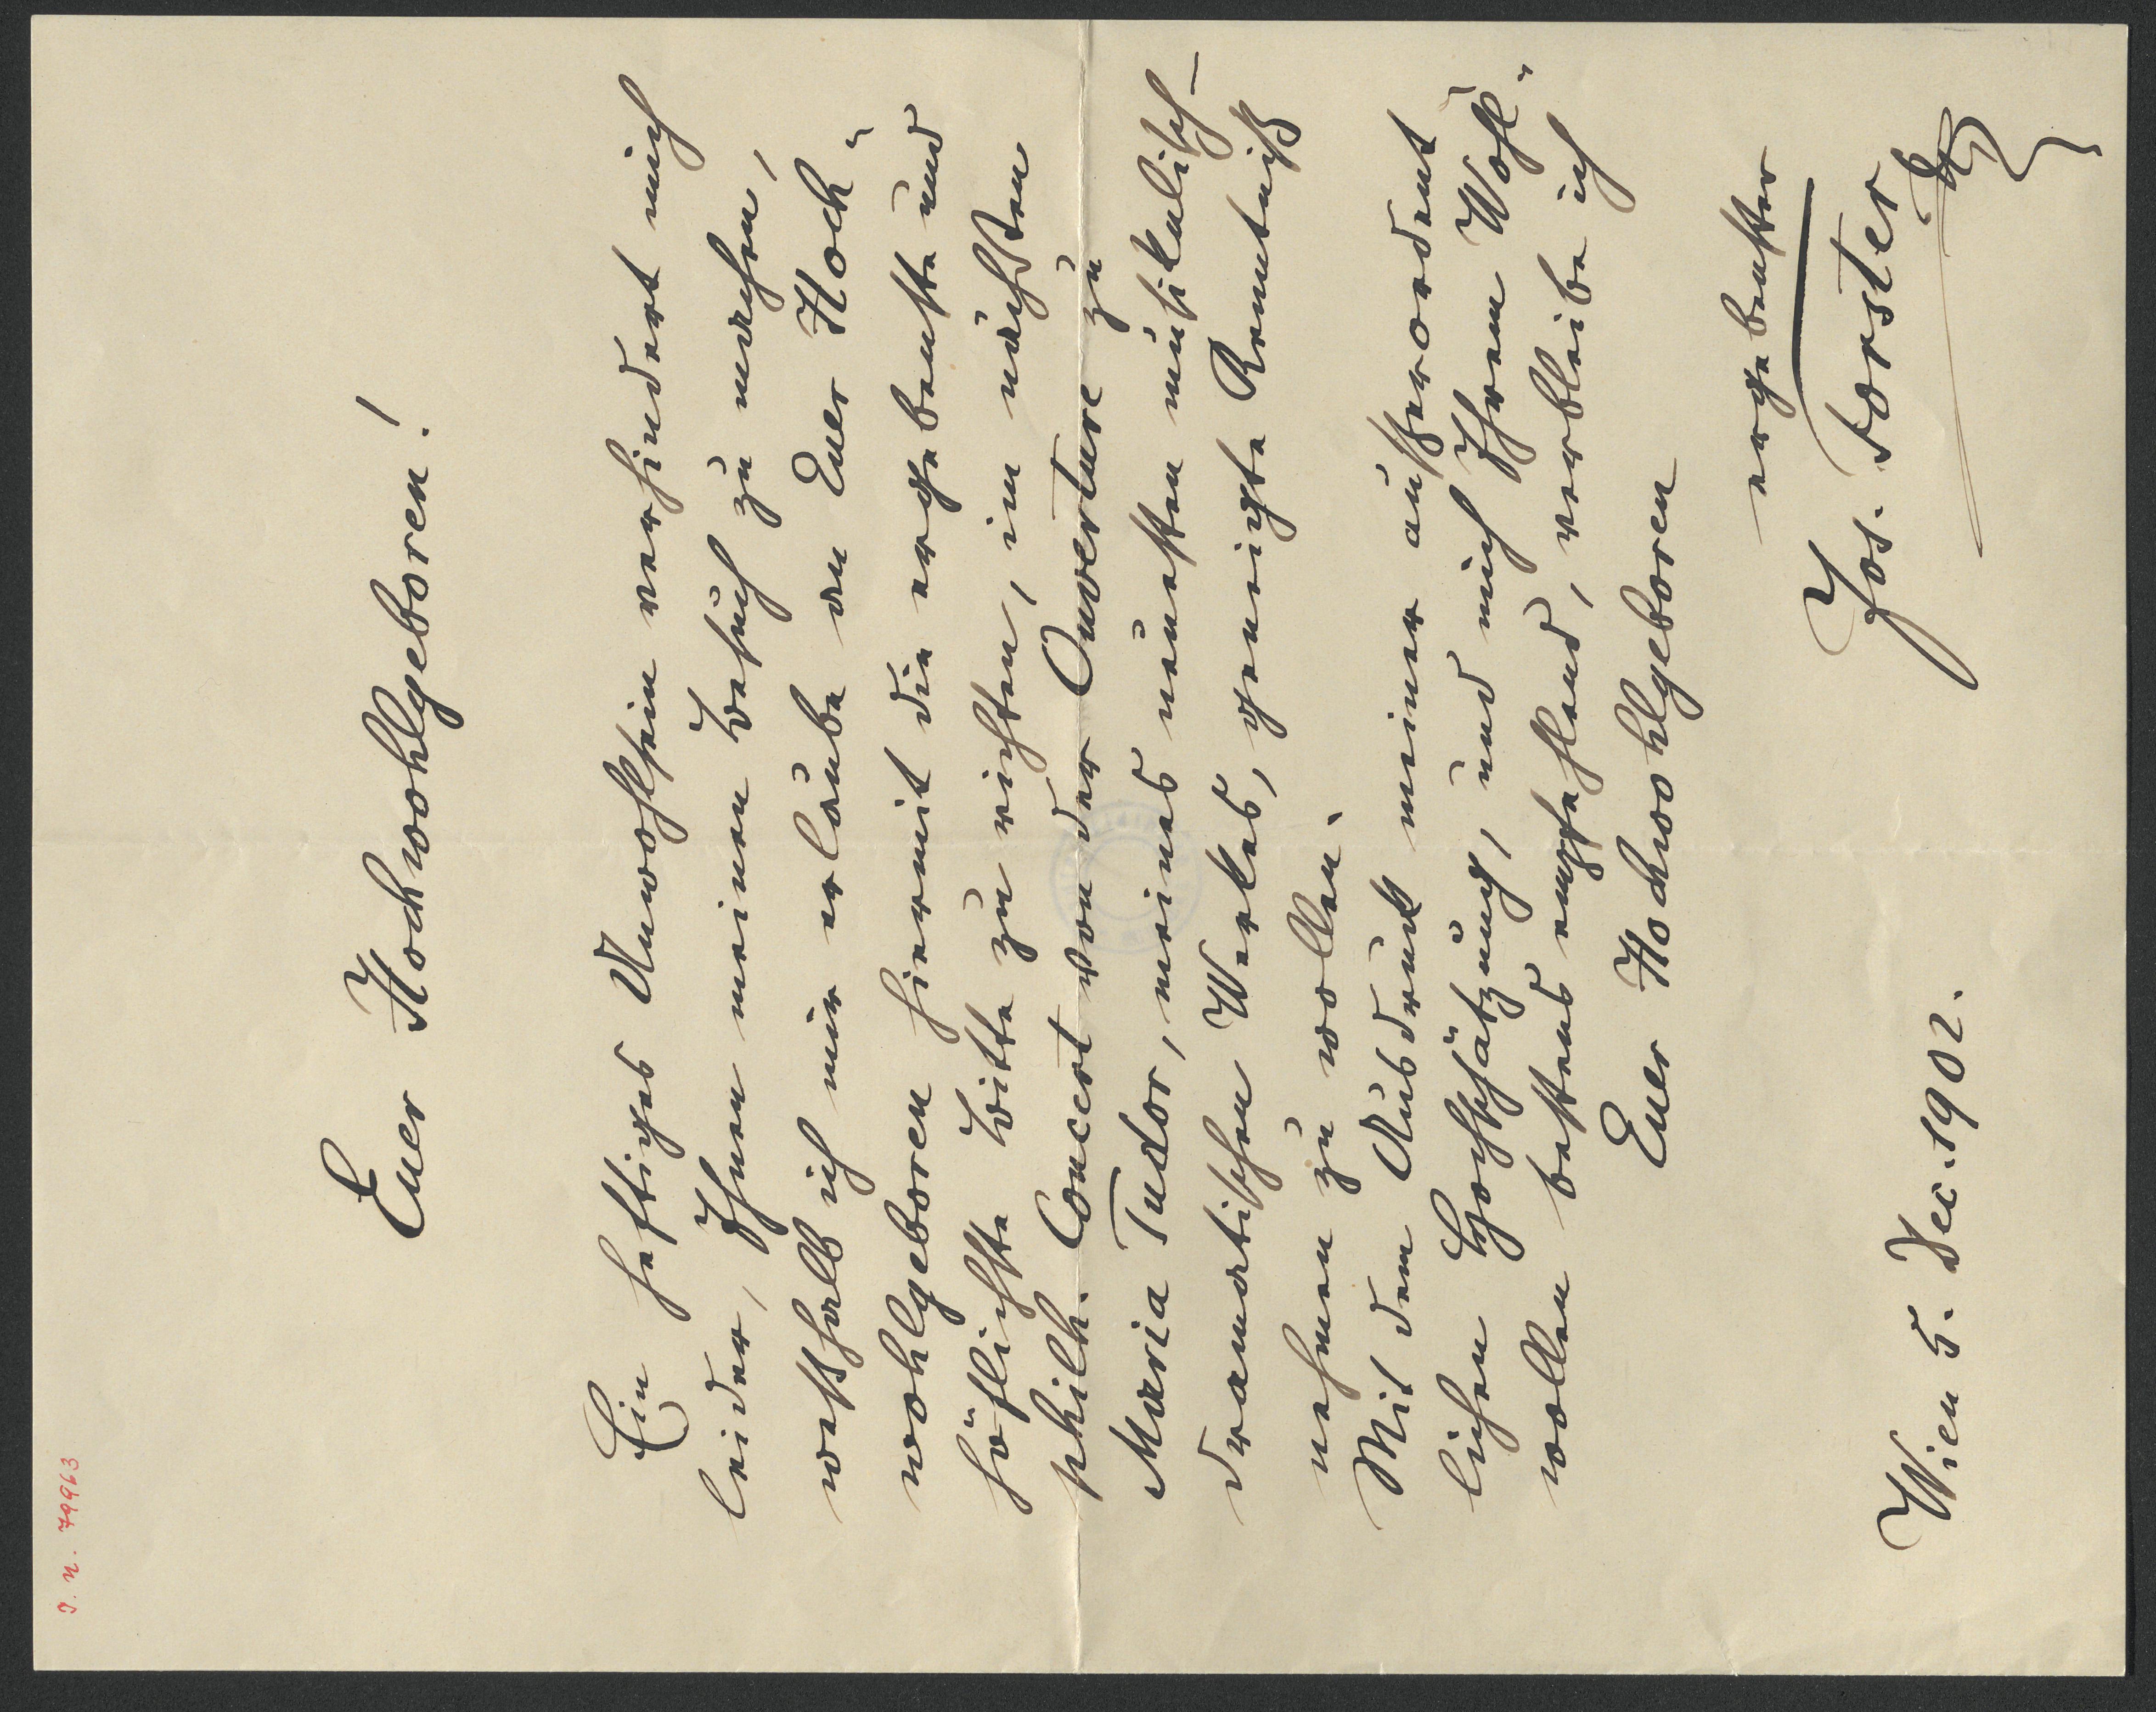 I. N. 79963
Euer Hochwohlgeboren!
Ein heftiges Unwohlsein verhindert mich
leider, Ihnen meinen Besuch zu machen,
weßhalb ich mir erlaube an Euer Hoch-
wohlgeboren hiermit die ergebenste und
höflichste Bitte zu richten, im nächsten
philh. Concert von der Ouverture zu
Maria Tudor, meines neuesten musikalisch-
dramatischen Werkes, geneigte Kenntniß
nehmen zu wollen.
Mit dem Ausdruck meiner außerordent-
lichen Hochschätzung, und mich Ihrem Wohl-
wollen bestens empfehlend, verbleibe ich
Euer Hochwohlgeboren
ergebenster
Jos. Forster
Wien 5. Dec. 1902.